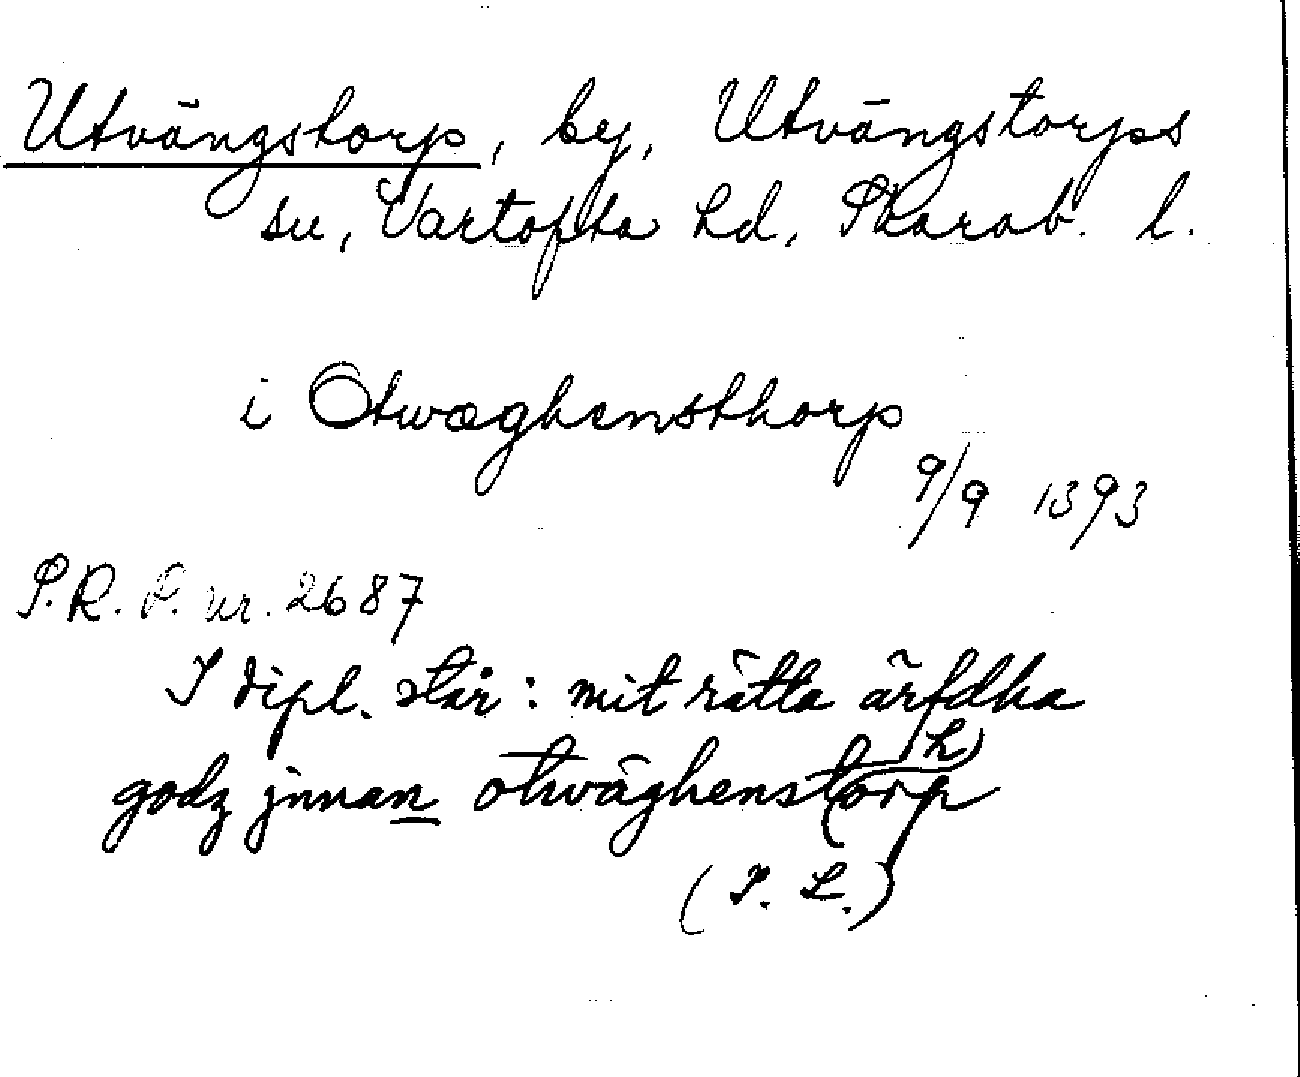 Utvängstorp, by, Utvängstorps
sn, Vartofta hd, Skarab. l.
i Otwæghensthorp
9/9 1393
S.R.P. nr. 2687
I dipl. står: mit rätta ärfdha
godz jnnan otwäghenst(h)orp
(I. L.)